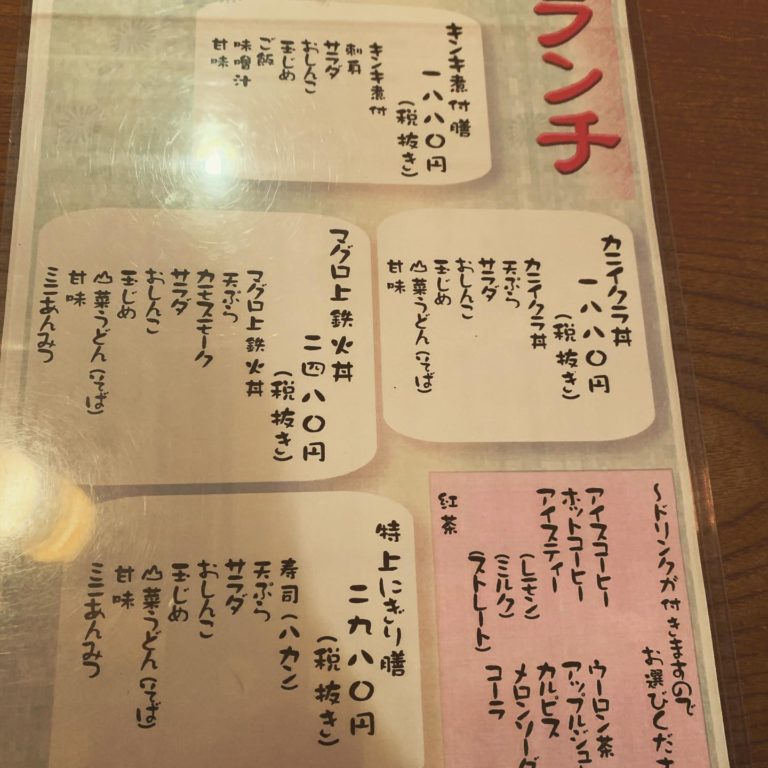 ランチ
キンキ煮付膳
一八八〇円
(税抜き)
キンキ煮付
刺身
サラダ
おしんこ
玉じめ
ご飯
味噌汁
甘味
カニイクラ丼
一八八〇円
(税抜き)
カニイクラ丼
天ぷら
サラダ
おしんこ
玉じめ
山菜うどん(そば)
甘味
マグロ上鉄火丼
二四八〇円
(税抜き)
マグロ上鉄火丼
天ぷら
カモスモーク
サラダ
おしんこ
玉じめ
山菜うどん(そば)
甘味
ミニあんみつ
〜ドリンクが付きますので
お選びくださ
アイスコーヒー
ホットコーヒー
アイスティー
(レモン)
(ミルク)
(ストレート)
紅茶
ウーロン茶
アップルジュー
カルピス
メロンソーダ
コーラ
特上にぎり膳
二九八〇円
(税抜き)
寿司(八カン)
天ぷら
サラダ
おしんこ
玉じめ
山菜うどん(そば)
甘味
ミニあんみつ